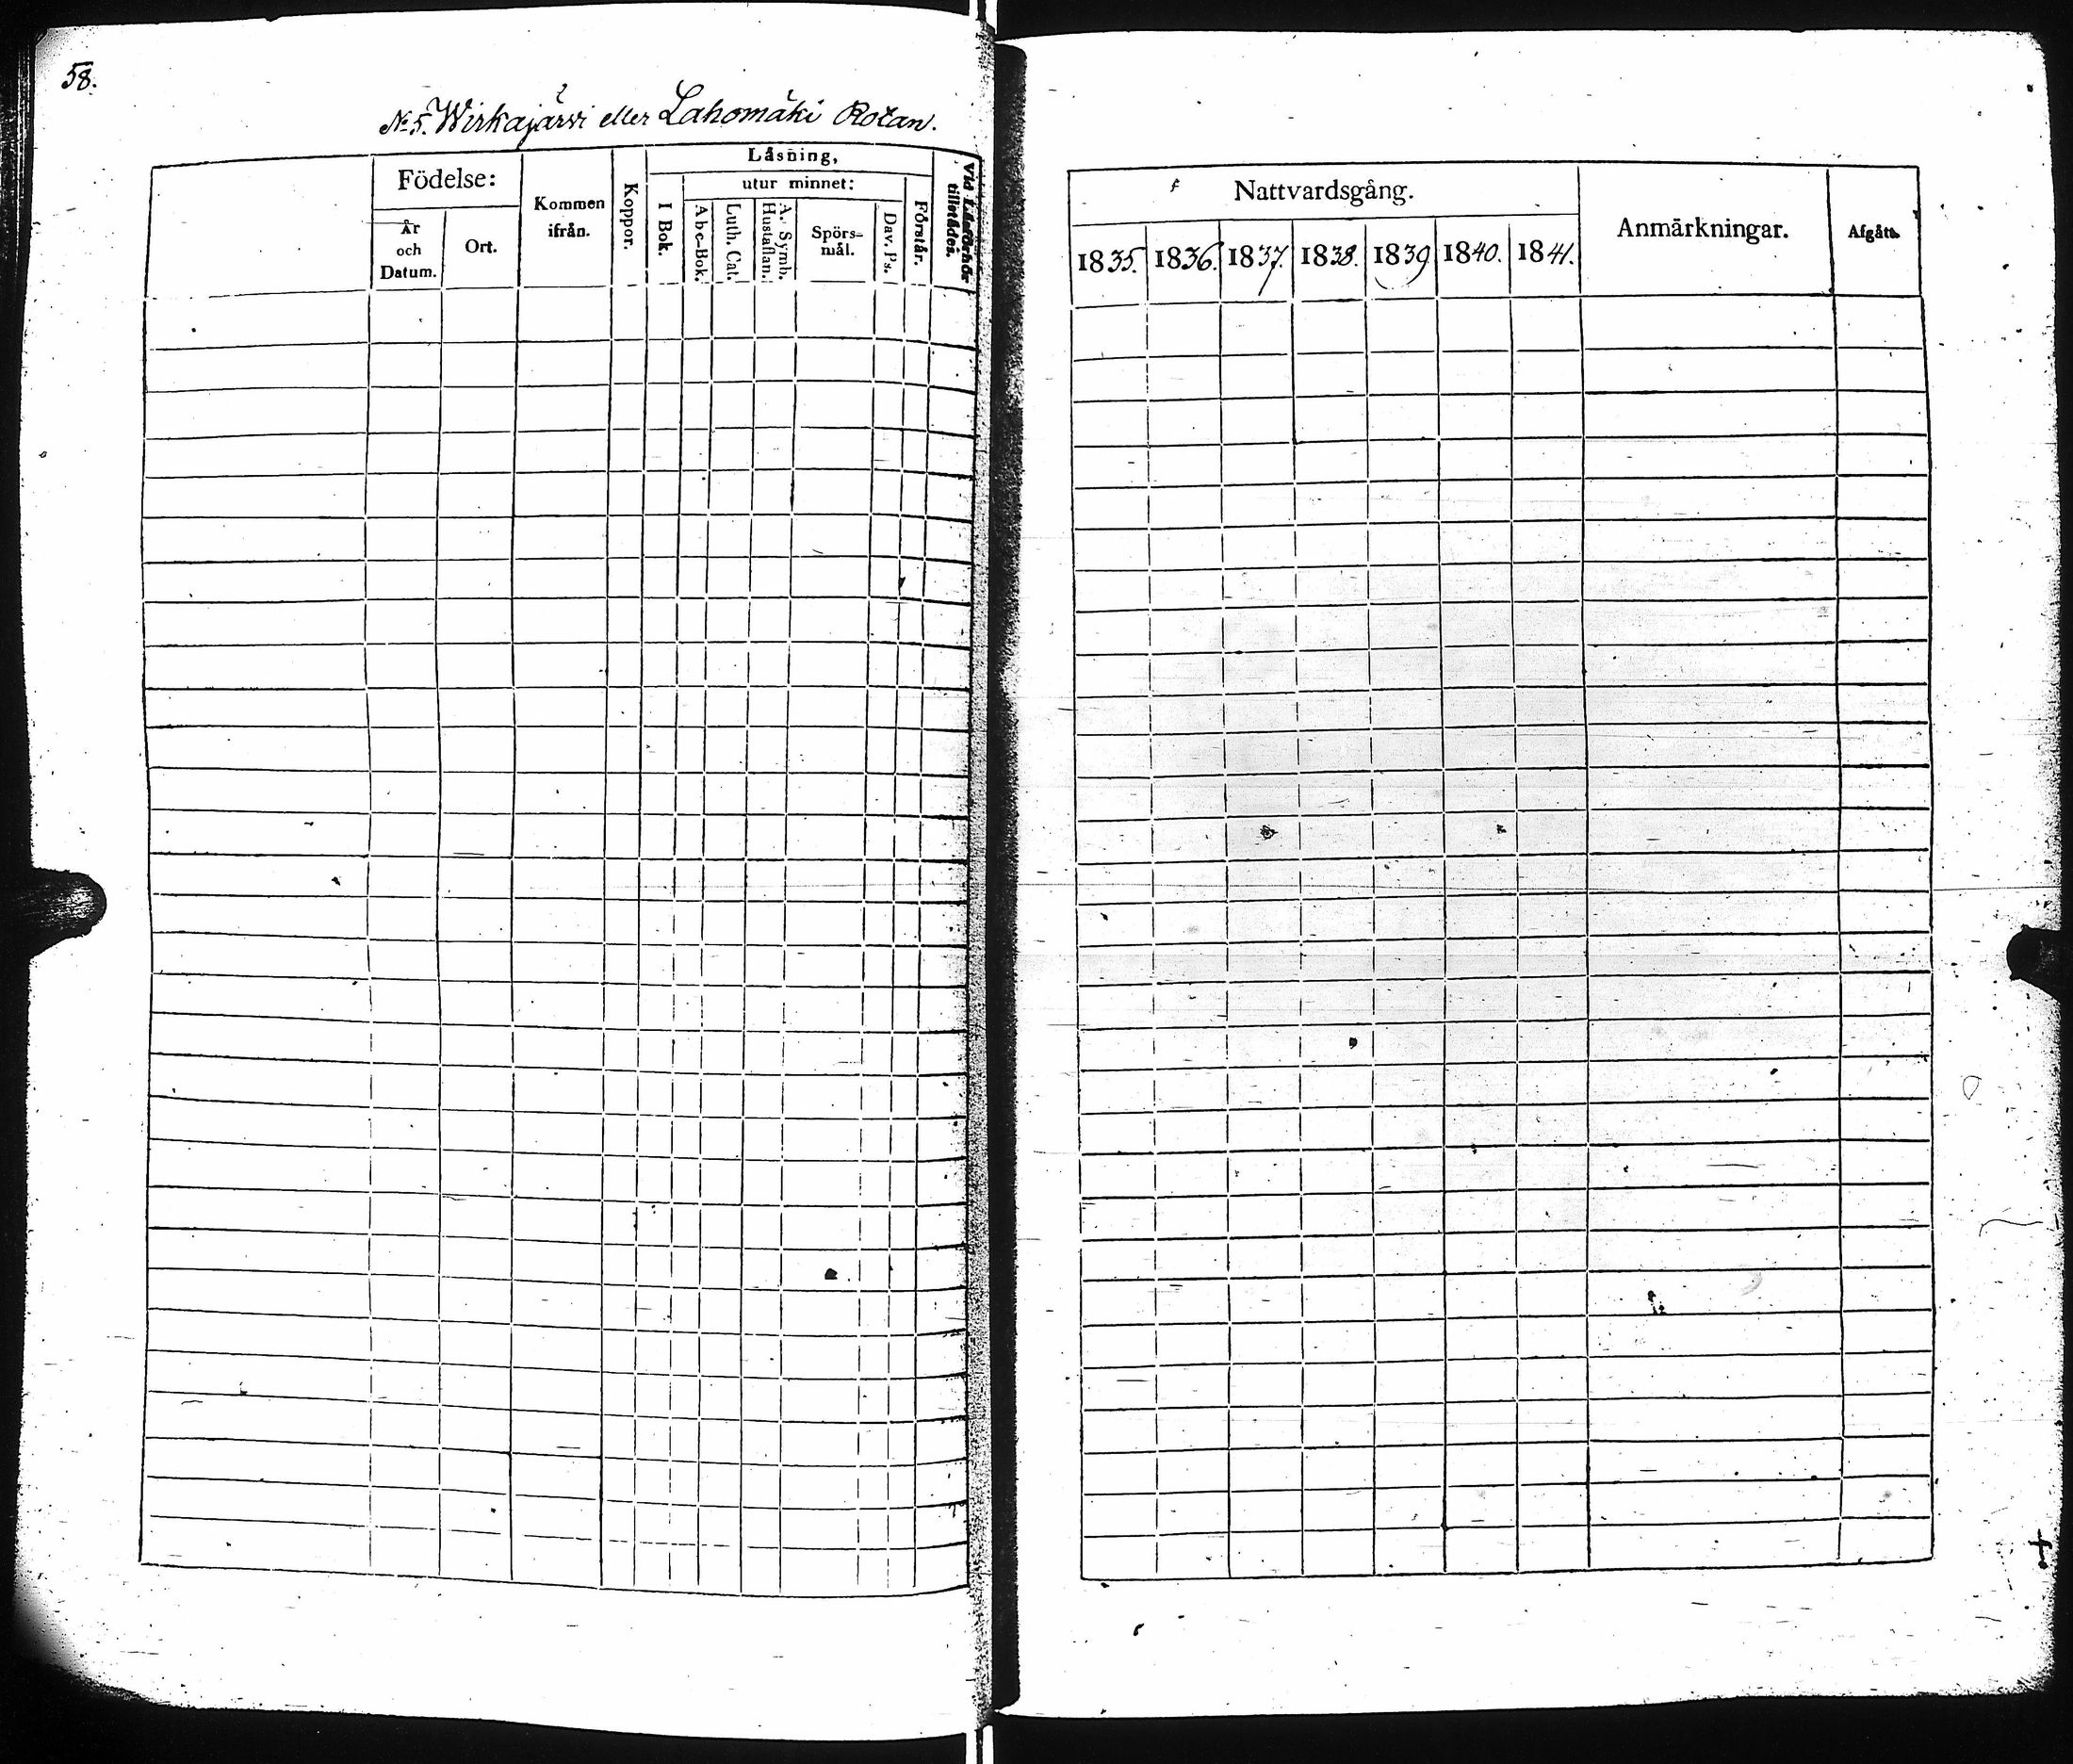 58.
No 5. Wirkajärvi eller Lahomäki Rotan.
Födelse:
År och Datum.
Ort.
Kommen ifrån.
Koppor.
Läsning,
I Bok.
utur minnet:
Abc-Bok.
Luth. Cat.
A. Symb. Hustaflan.
Spörs-
mål.
Dav. Ps.
Förstår.
Vid Läsförhör tillstädes.
Nattvardsgång.
1835. 1836. 1837. 1838. 1839 1840. 1841.
Anmärkningar.
Afgått.